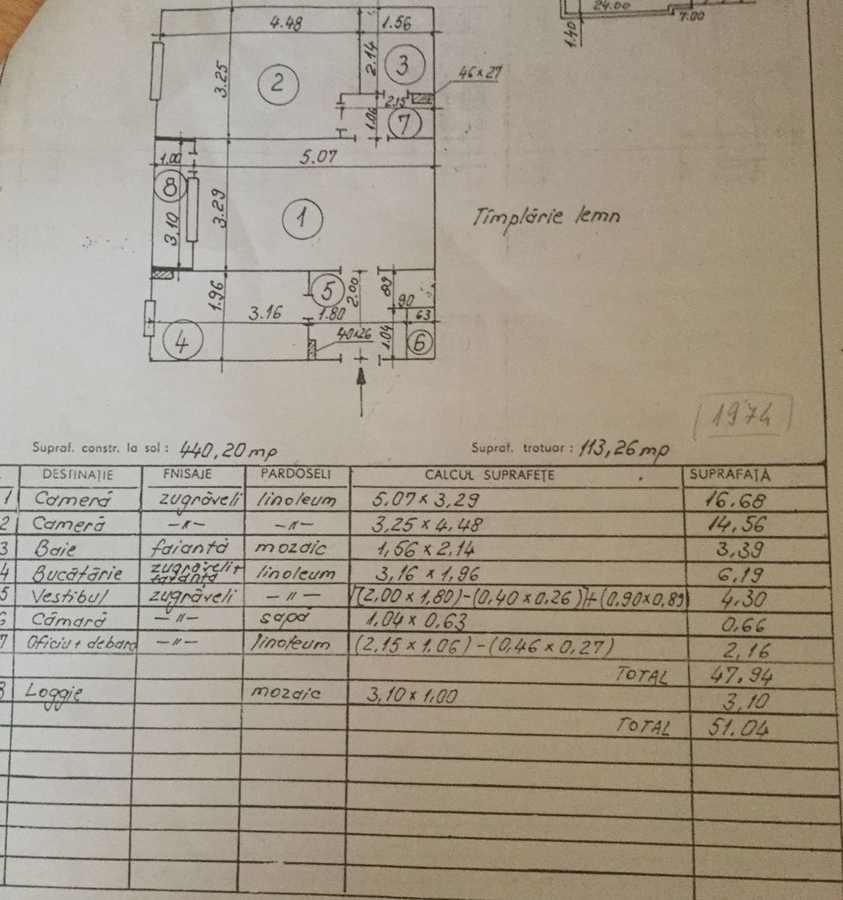 24.00
7.00
1.40
4.48 1.56
3.25 2 2.14 3
46x27
2.15
1.06 7
1.00 5.07
8
3.10 3.29 1
Tîmplărie lemn
1.96 5 2.00 89
90
3.16 1.80 63
4 40x26 1.04 6
1974
Supraf. constr. la sol : 440,20 mp Supraf. trotuar : 113,26 mp
DESTINAȚIE FNISAJE PARDOSELI CALCUL SUPRAFEȚE SUPRAFAȚA
1 Cameră zugrăveli linoleum 5.07 x 3,29 16.68
2 Cameră —"— —"— 3,25 x 4,48 14,56
3 Baie faianță mozaic 1,56 x 2,14 3,39
4 Bucătărie zugrăveli+ faianță linoleum 3,16 x 1,96 6,19
5 Vestibul zugrăveli —"— [(2,00 x 1,80)-(0,40 x 0,26)]+(0,90x0,89) 4.30
6 Cămară —"— șapă 1,04 x 0,63 0,66
7 Oficiu+ debara —"— linoleum (2,15 x 1.06) - (0,46 x 0,27) 2,16
TOTAL 47.94
8 Loggie mozaic 3,10 x 1,00 3,10
TOTAL 51.04